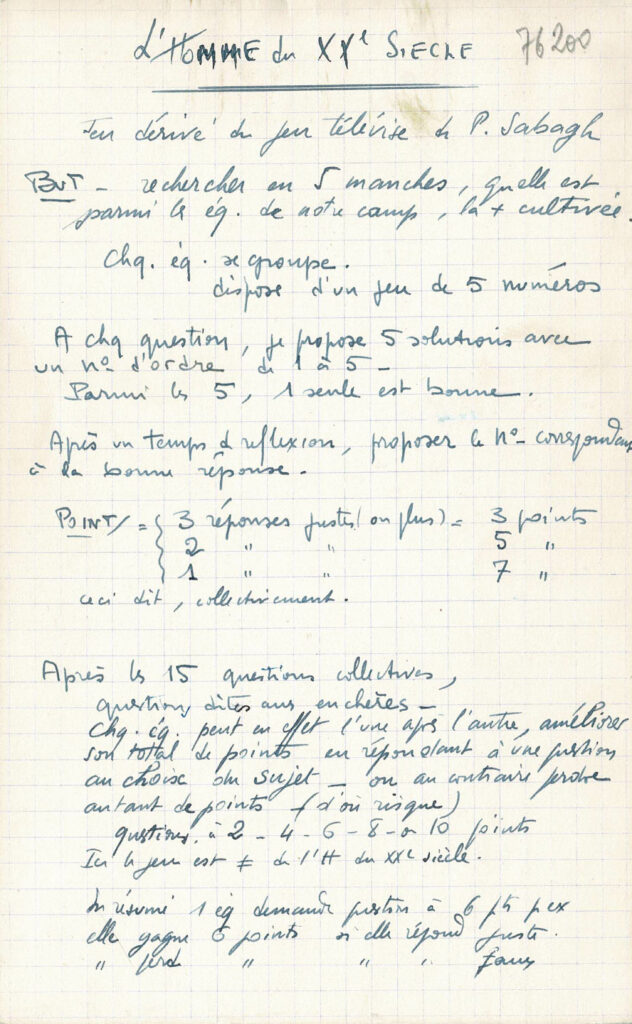 L'HOMME du XXe SIECLE 76200
Jeu dérivé du jeu télévisé de P. Sabagh
BUT - rechercher en 5 manches, quelle est
parmi les éq. de notre camp, la + cultivée.
Chq. éq. se groupe.
dispose d'un jeu de 5 numéros
A chq question, je propose 5 solutions avec
un no d'ordre de 1 à 5 -
Parmi les 5, 1 seule est bonne.
Après un temps de reflexion, proposer le no correspondant
à la bonne réponse.
POINTS = { 3 réponses justes (ou plus) = 3 points
2 " " 5 "
1 " " 7 "
ceci dit, collectivement.
Après les 15 questions collectives,
questions dites aux enchères -
Chq. éq. peut en effet l'une après l'autre, améliorer
son total de points en répondant à une question
au choix du sujet - ou au contraire perdre
autant de points - (d'où risque)
questions à 2 - 4 - 6 - 8 - ou 10 points
Ici le jeu est ≠ de l'H du XXe siècle.
En résumé 1 éq demande question à 6 pts p ex
elle gagne 6 points si elle répond juste.
" perd " " " faux